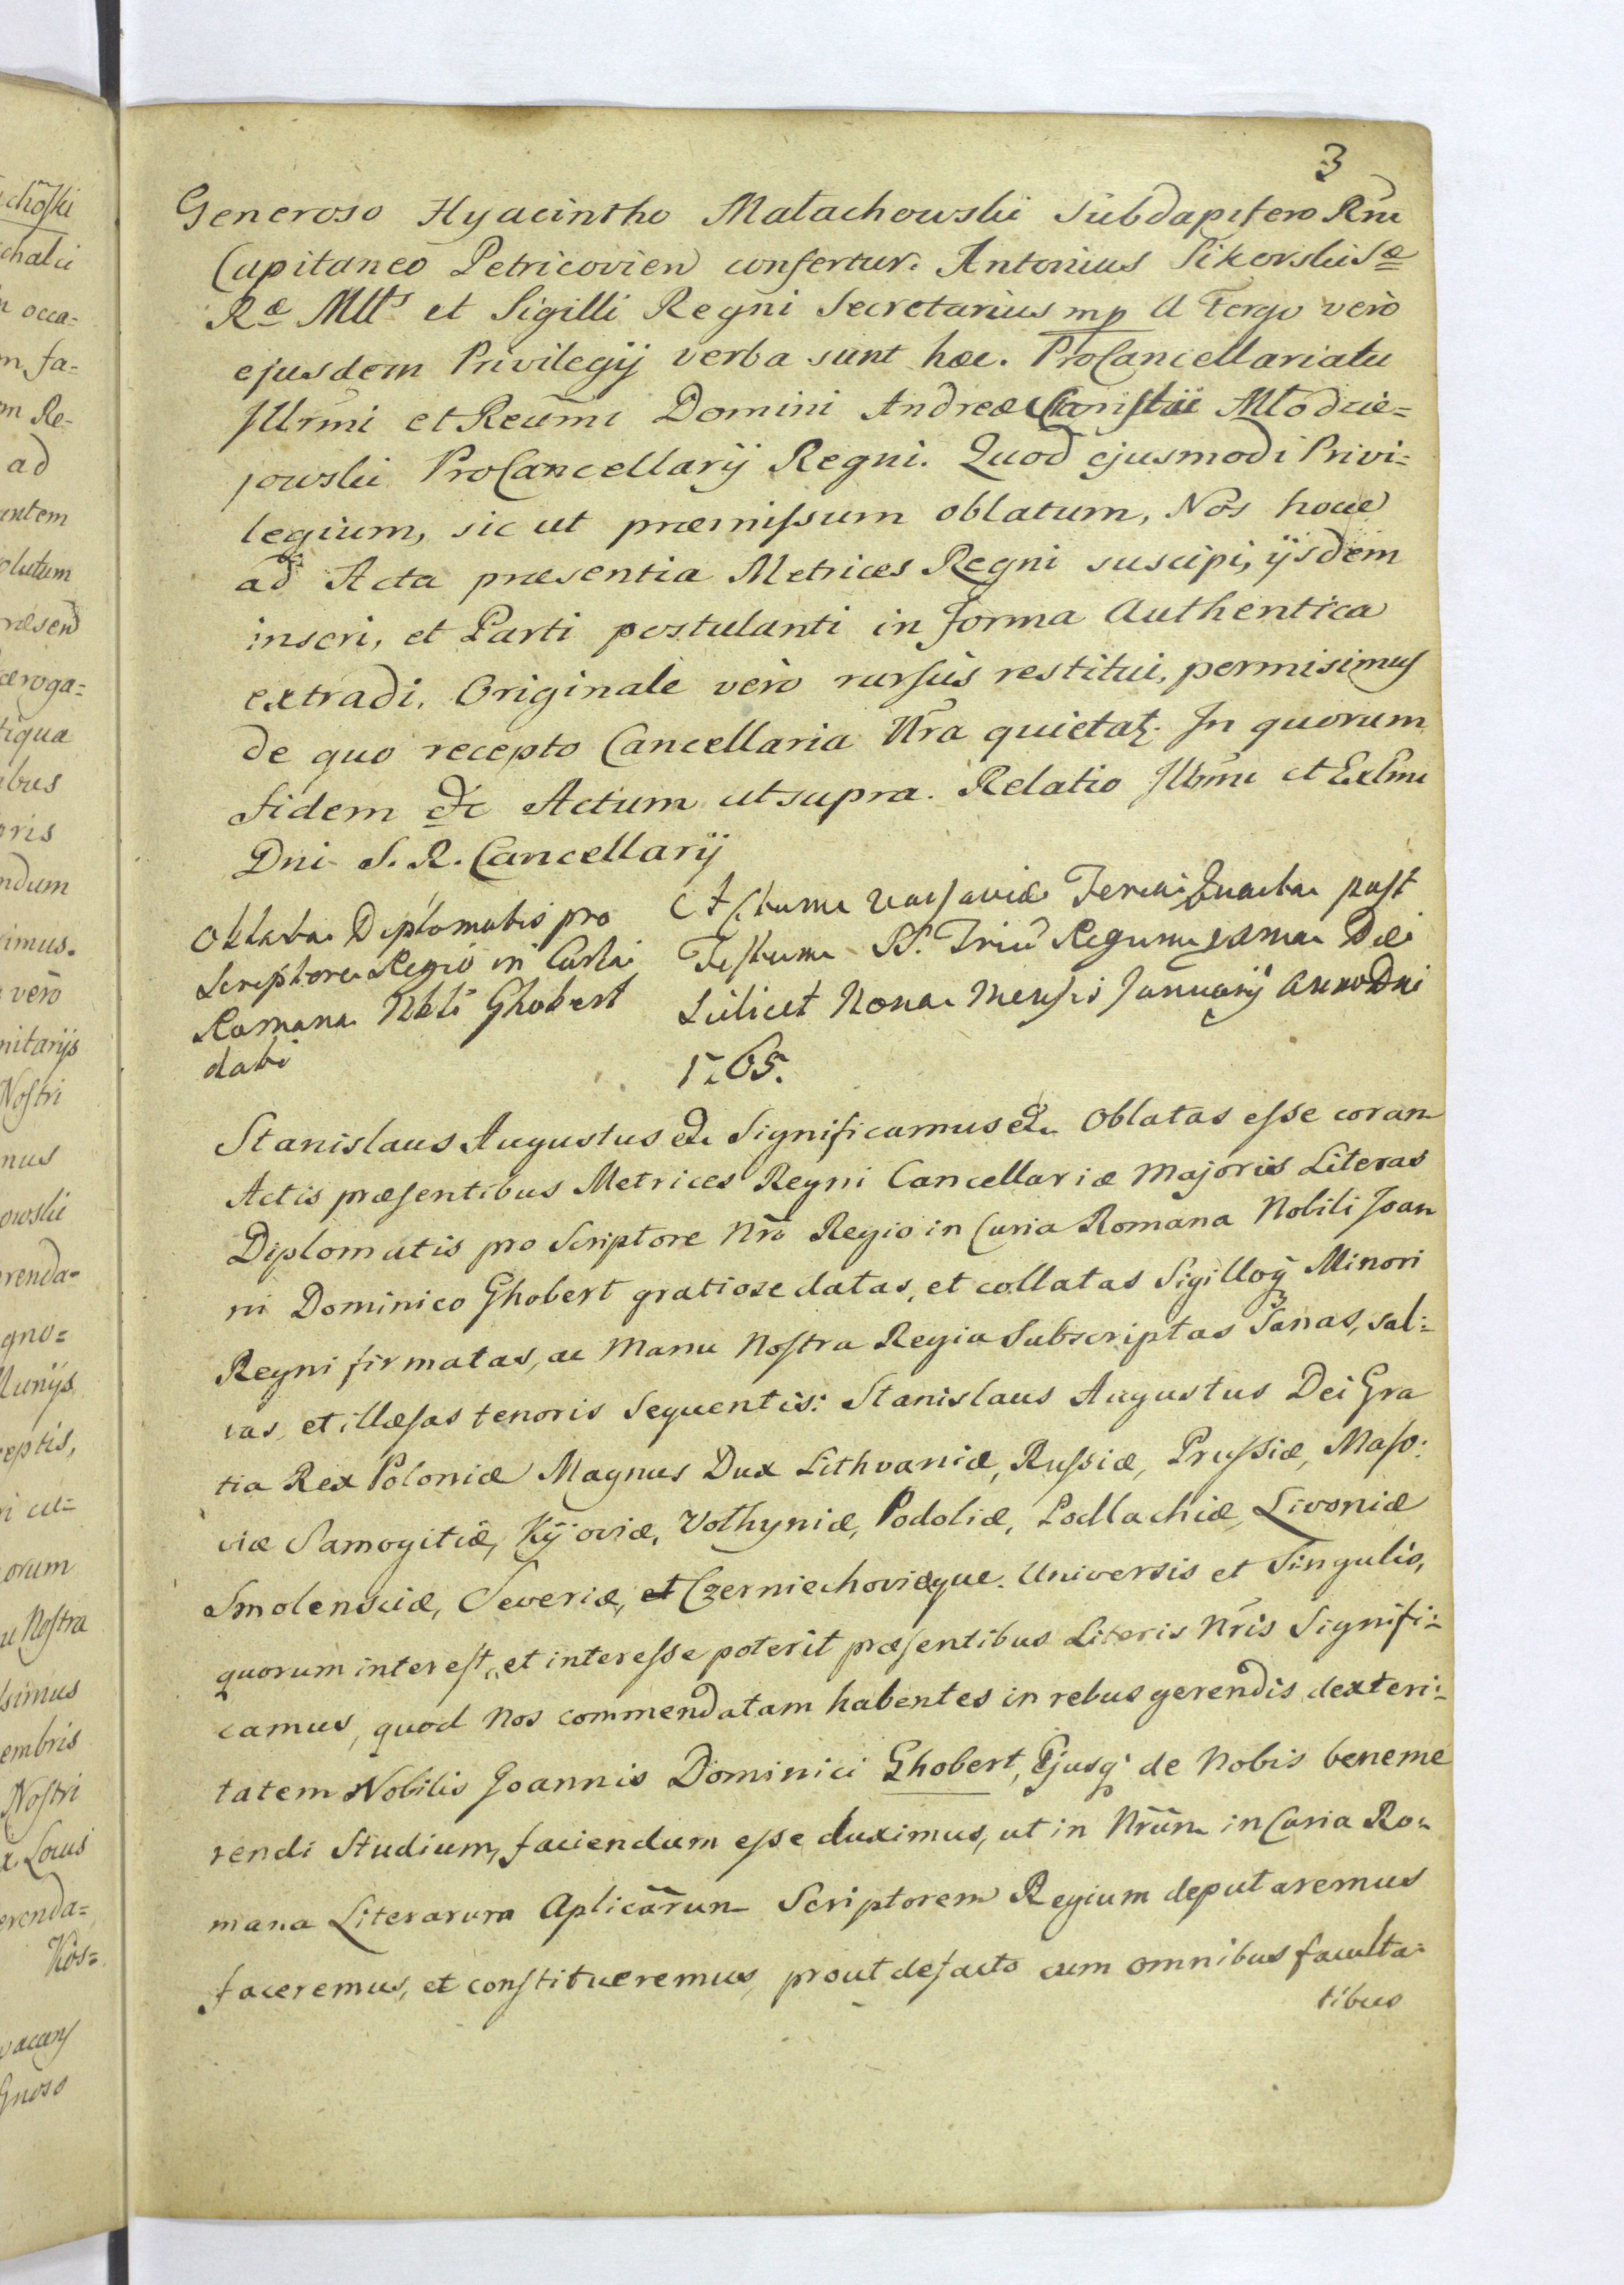 3
Generoso Hyacintho Małachowski Subdapifero Rni
Capitaneo Petricovien confertur. Antonius Sikorski Sæ
Ræ Mtts et Sigilli Regni Secretarius mp A Tergo verò
ejusdem Privilegij verba sunt hæc. ProCancellariatu
Illrmi et Reūmi Domini Andreæ Młodzie=
jowski ProCancellarij Regni. Quod ejusmodi Privi=
legium, sic ut præmissum oblatum, Nos hocce
ad Acta præsentia Metrices Regni suscipi, ijsdem
inseri, et Parti postulanti in forma Authentica
extradi, Originale verò rursùs restitui, permisimus
de quo recepto Cancellaria Nra quietat. In quorum
fidem &c Actum ut supra. Relatio Illrmi et Exlmi
Dni S. R. Cancellarij
Oblata Diplomatis pro
Scriptore Regio in Curia
Romana Nbli Ghobert
dati
Actum Varsaviæ Feria Quarta post
Festum SS. Triũ Regum proxima Die
Scilicet Nona Mensis Januarij Anno Dni
1765.
Stanislaus Augustus &c Significamus &c Oblatas esse coram
Actis præsentibus Metrices Regni Cancellariæ Majoris Literas
Diplomatis pro Scriptore Nrō Regio in Curia Romana Nobili Joan
ni Dominico Ghobert gratiose datas, et collatas Sigilloq3 Minori
Regni firmatas, ac Manu Nostra Regia Subscriptas Sanas, sal=
vas, et illæsas tenoris sequentis: Stanislaus Augustus Dei Gra
tia Rex Poloniæ Magnus Dux Lithvaniæ, Russiæ, Prussiæ, Maso=
viæ Samogitiæ, Kijoviæ, Volhyniæ, Podoliæ, Podlachiæ, Livoniæ
Smolensciæ, Severiæ, et Czerniechoviæque. Universis et Singulis,
quorum interest, et interesse poterit præsentibus Literis Nrīs Signifi=
camus, quod Nos commendatam habentes in rebus gerendis dexteri=
tatem Nobilis Joannis Dominici Ghobert, Ejusq' de Nobis beneme
rendi Studium, faciendum esse duximus, ut in Nrūm in Curia Ro=
mana Literarum Aplicārūm Scriptorem Regium deputaremus
faceremus, et constitueremus, prout defacto cum omnibus faculta=
tibus